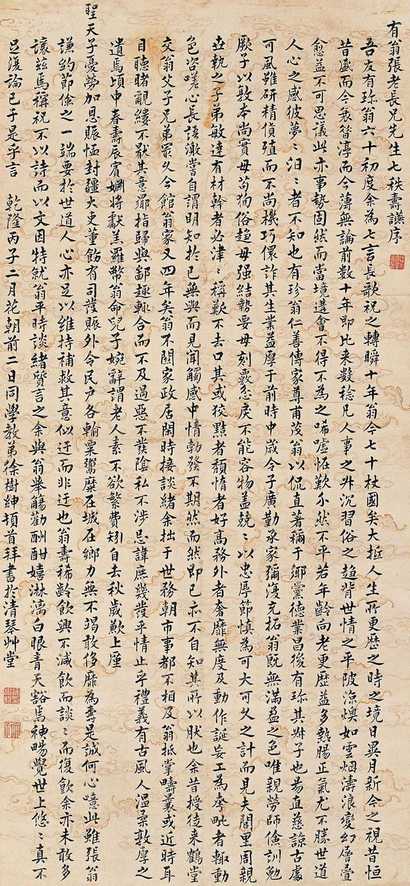 有翁張老長兄先生七秩壽讌序
吾友有珍翁六十初度余為七言長歌祝之轉瞬十年翁今七十杖國矣大抵人生所更歷之時之境日異月新今之視昔恒
昔盛而今衰昔淳而今薄無論前數十年即比來數稔凡人事之升沉習俗之趨背世情之平陂涼燠如雲烟濤浪變幻層疊
愈益不可思議此亦事勢固然而當境遭會不得不為之唏噓恠歎尓然不平若年齡向老更歷益多熱腸正氣尤不勝世道
人心之感彼夢夢汩汩者不知也有珍翁仁善傳家尊甫茂翁以侃直著稱于鄉黨德業昌後有珍其冢子也昜直慈諒古處
可風雖研精債殖而不尚機巧僞詐其生業益摩于前時中歲令子廣勷承家彌復充拓翁既無滿盈之色唯親勞師儉訓勉
厥子以敦本尚實毋苟徇俗趨毋强結勢要毋刻覈怠戾不能容物盖兢兢以忠厚節慎為可大可久之計而見夫閭里周親
世執之子弟敏達有材幹者必津津稱歎不去口其或狡黠者頹惰者好高務外者奢靡無度及動作誕妄工為摹眦者輒動
色咨嗟心長該激嘗自謂明知於己無與而見聞觸感中情勃發不期然而然即己亦不自知其所以狀也余昔授徒来鶴堂
交翁父子兄弟最久今館翁家又四年矣翁不關家政居閒時接談緒余拙于世務朝市事都不相及翁抵掌疇曩或近時耳
目聽睹覼縷不猒其意㫖指歸與鄙趣輒合而不及過惡不發陰私不涉忌諱庶幾發乎情止乎禮義有古風人温柔敦厚之
遺焉頃中春壽辰賓婣將獻羔羅幣翁命兒子婉辭謂老人素不欲繁費矧自去秋歲歉上廑
聖天子憂勞加恩賑恤封疆大吏董飭有司護賑外令民戶各輸粟鬻糜在城在鄉力無不竭敢侈靡為壽是誠何心噫此雖張翁
謙約節儉之一端要於世道人心亦足以維持補救其意似迂而非迂也翁壽稀齡飲興不減飲而談談而復飲余亦未敢多
讓茲焉稱祝不以詩而以文因特就翁平時談緒質言之余與翁舉觴勸酬酣嬉淋漓白眼青天豁焉神暢覺世上悠悠真不
足深論已于是乎言　乾隆丙子二月花朝前二日同學教弟徐樹紳頓首拜書於清琴艸堂